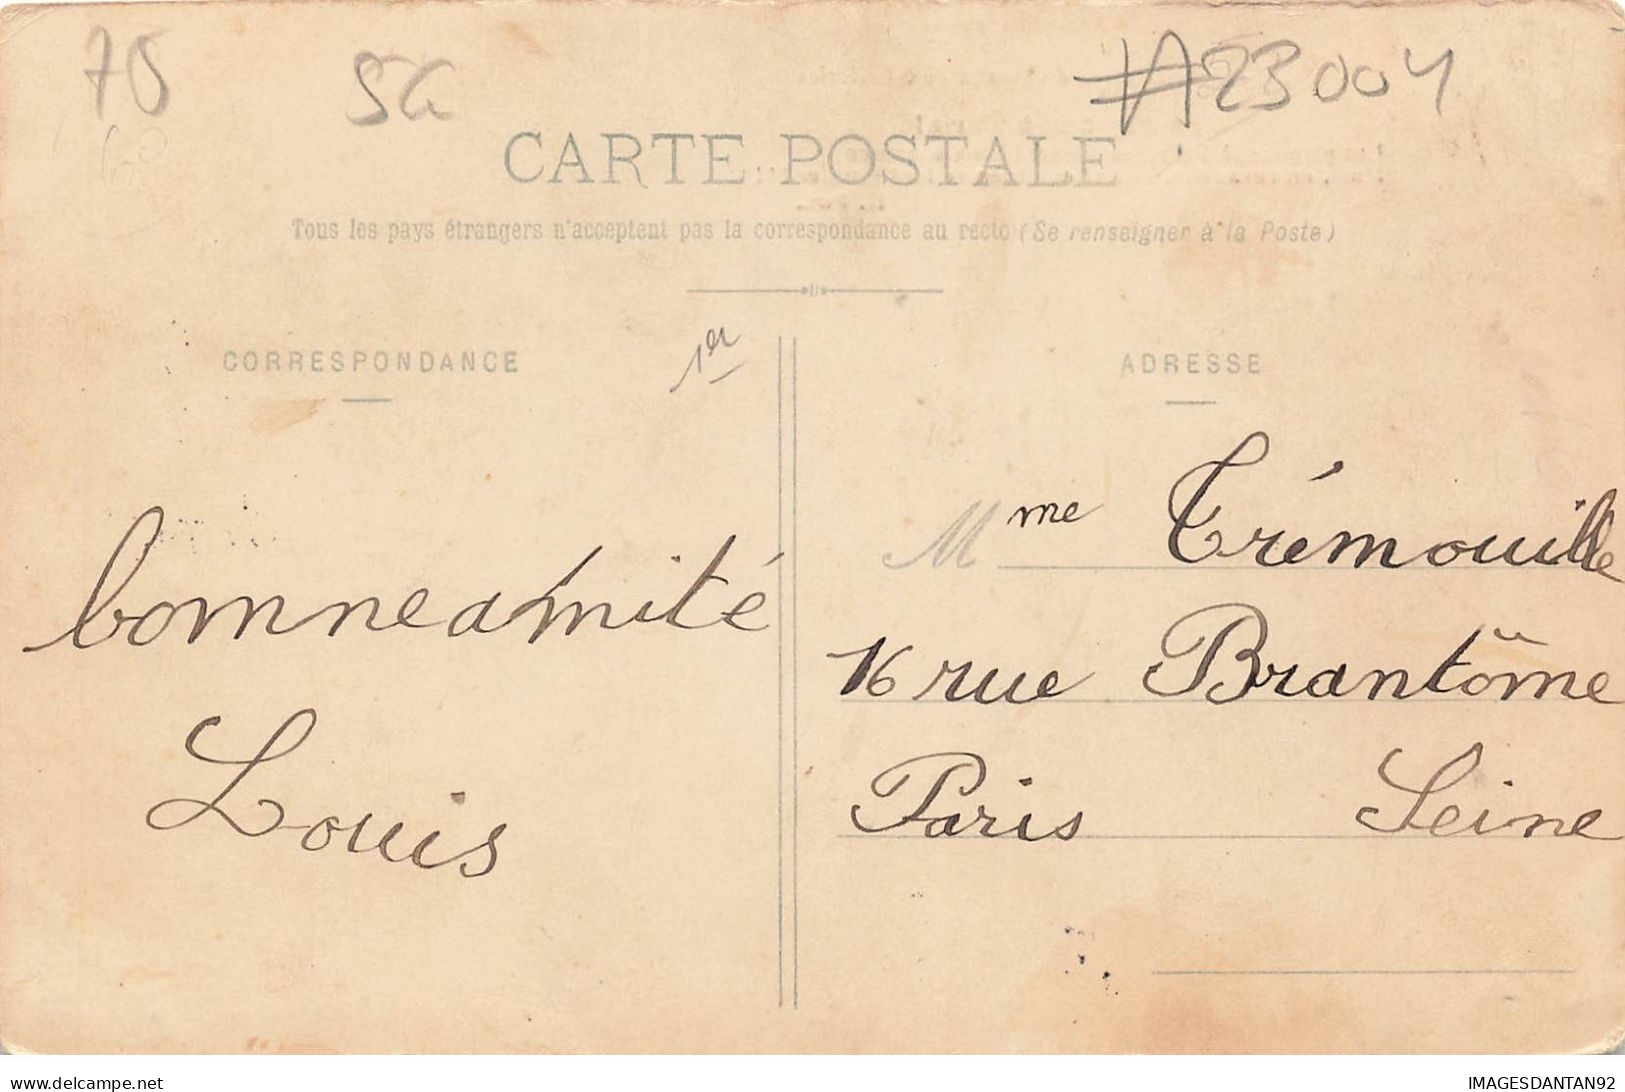 75
5G
#A23004
60
CARTE POSTALE
Tous les pays étrangers n'acceptent pas la correspondance au recto (Se renseigner à la Poste)
CORRESPONDANCE
1er
ADRESSE
bonne amitié
Louis
Mme Trémouille
16 rue Brantôme
Paris Seine
https://www.delcampe.net
IMAGESDANTAN92